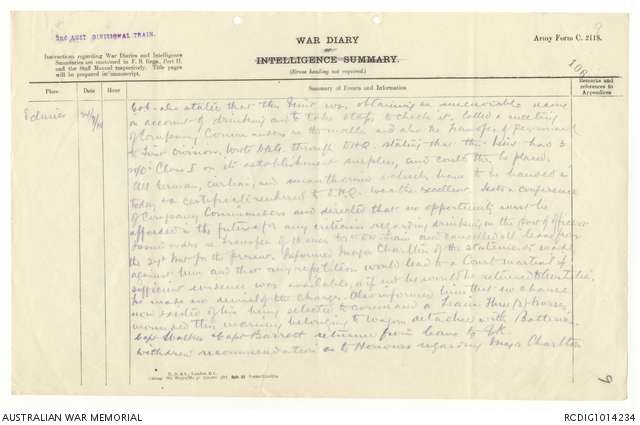 2ND AUST DIVISIONAL TRAIN.
WAR DIARY
or
INTELLIGENCE SUMMARY.
(Erase heading not required.)
Army Form C. 2118.
9
Instructions regarding War Diaries and Intelligence
Summaries are contained in F. S. Regs., Part II.
and the Staff Manual respectively. Title pages
will be prepared in manuscript.
106
Place
Date
Hour
Summary of Events and Information
Remarks and
references to
Appendices
Col. also stated that this Unit was obtaining an name
on account of drinking and to take steps to check it. Called a meeting
of Company Commanders on the matter and also the transfer of personnel
to Line division. Wrote through D.H.Q. stating that the Unit had 3
W/O Class I on its establishment surplus, and could they be placed.
All German, civilian, and unauthorised vehicles have to be handed in
today & a certificate rendered to D.H.Q. Weather excellent. Held a conference
of Company Commanders and directed that no opportunity must be
afforded in the future for any criticism regarding drinking on the part of Officers
Issued orders re transfer of men to and cancelled all leave from
the 24th Inst for the present. Informed Major Charlton of the statements made
against him and that any repetition would lead to a Court martial if
sufficient evidence was available, & if not he would be returned to Australia.
he made no denial of the charge. Also informed him that no chance
now existed of his being selected to command a Train. Three (3) horses
wounded this morning belonging to wagon detached with Batteries.
Capt Walker Capt Barrett returned from leave to U.K.
Withdrew recommendation as to Honours regarding Major Charlton
9
AUSTRALIAN WAR MEMORIAL
RCDIG1014234